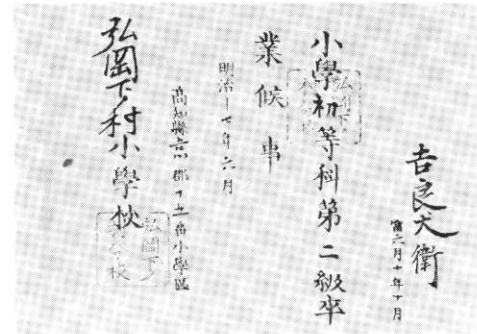 吉良犬衛
當六月十年十月
小學初等科第二級卒
業候事
明治十七年六月
高知縣吾川郡十五番小學區
弘岡下ノ村小學校